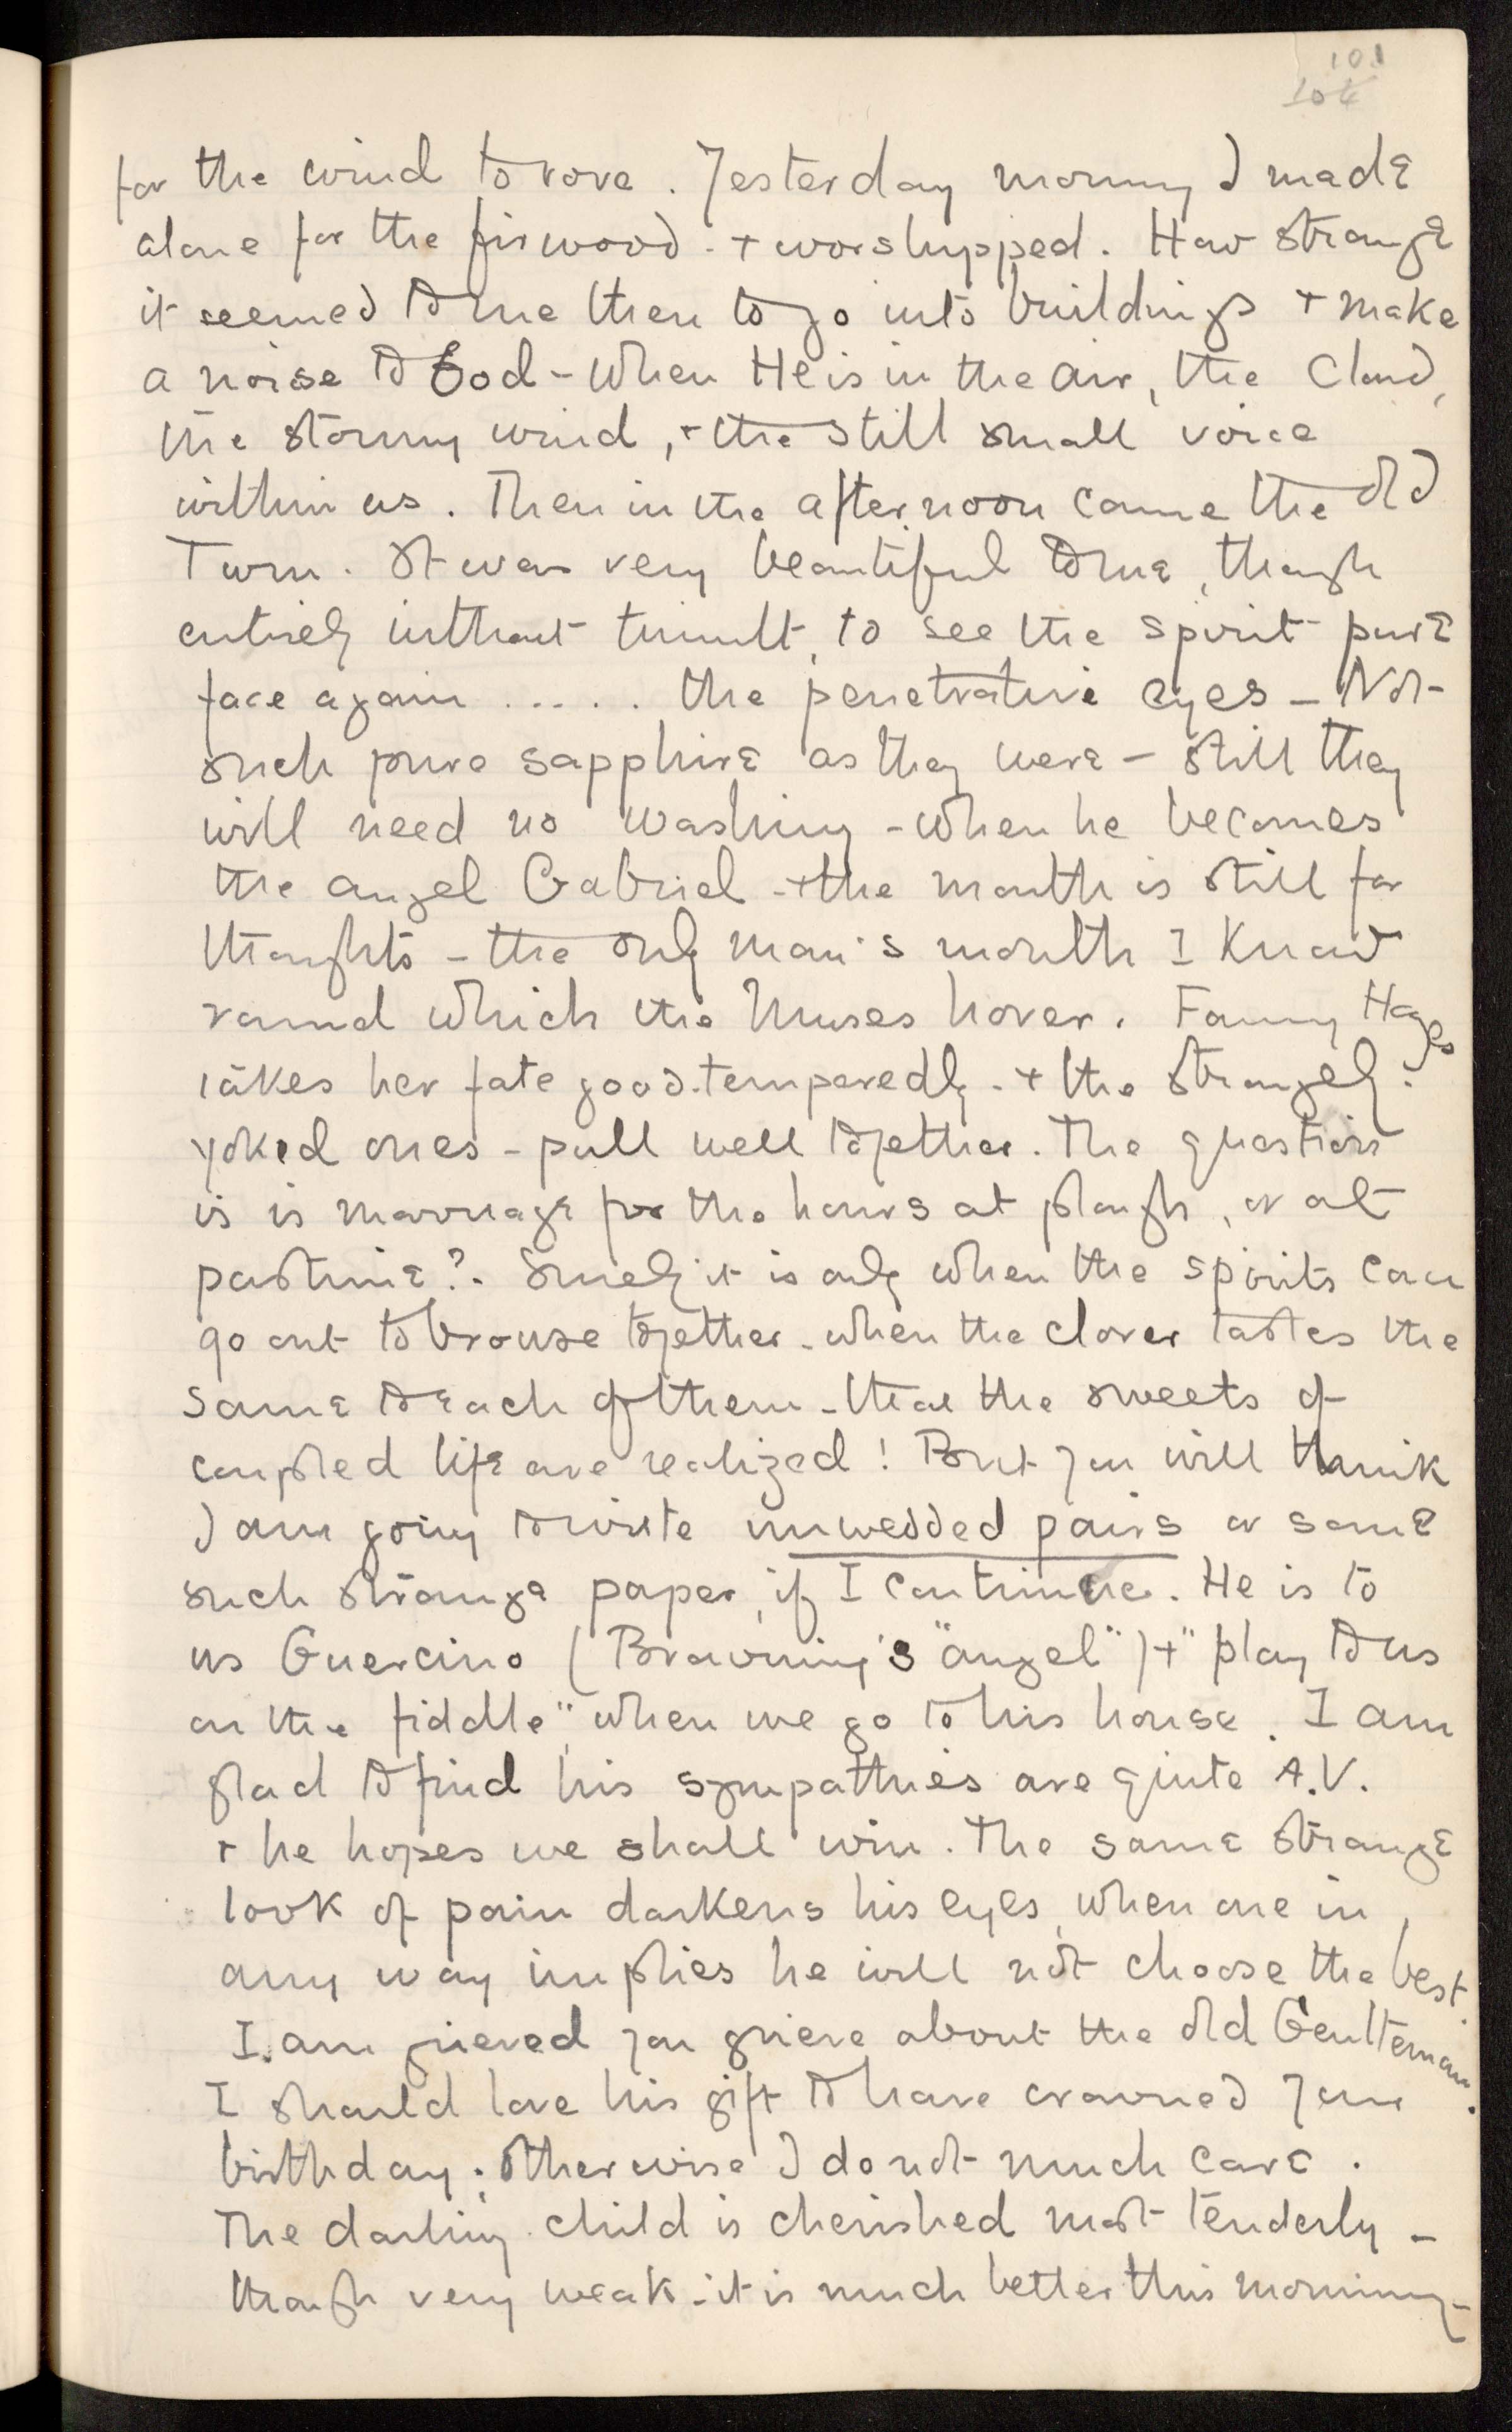 101
104
for the wind to rove. Yesterday morning I made
alone for the firwood - + worshipped. How strange
it seemed to me then to go into buildings + make
a noise to God - when He is in the air, the cloud,
the stormy wind, + the still small voice
within us. Then in the afternoon came the old
Turn. It was very beautiful to me, though
entirely without tumult, to see the spirit pure
face again ..... the penetrative eyes - Not
such pure sapphire as they were - still they
will need no washing - when he becomes
the angel Gabriel - + the mouth is still for
thoughts - the only man's mouth I know
round which the Muses hover. Fanny Hayes
takes her fate good-temperedly - + the strangely-
yoked ones - pull well together. The question
is is marriage for the hours at plough, or at
pastime? - Surely it is only when the spirits can
go out to browse together - when the clover tastes the
same to each of them - that the sweets of
coupled life are realized! But you will think
I am going to write unwedded pairs or some
such strange paper, if I continue. He is to
us Guercino (Browning's "angel") + "play to us
on the fiddle", when we go to his house. I am
glad to find his sympathies are quite A.V.
+ he hopes we shall win. The same strange
look of pain darkens his eyes, when one in
any way implies he will not choose the best.
I am grieved you grieve about the old Gentleman.
I should love his gift to have crowned your
birthday; otherwise I do not much care.
The darling child is cherished most tenderly -
though very weak - it is much better this morning -